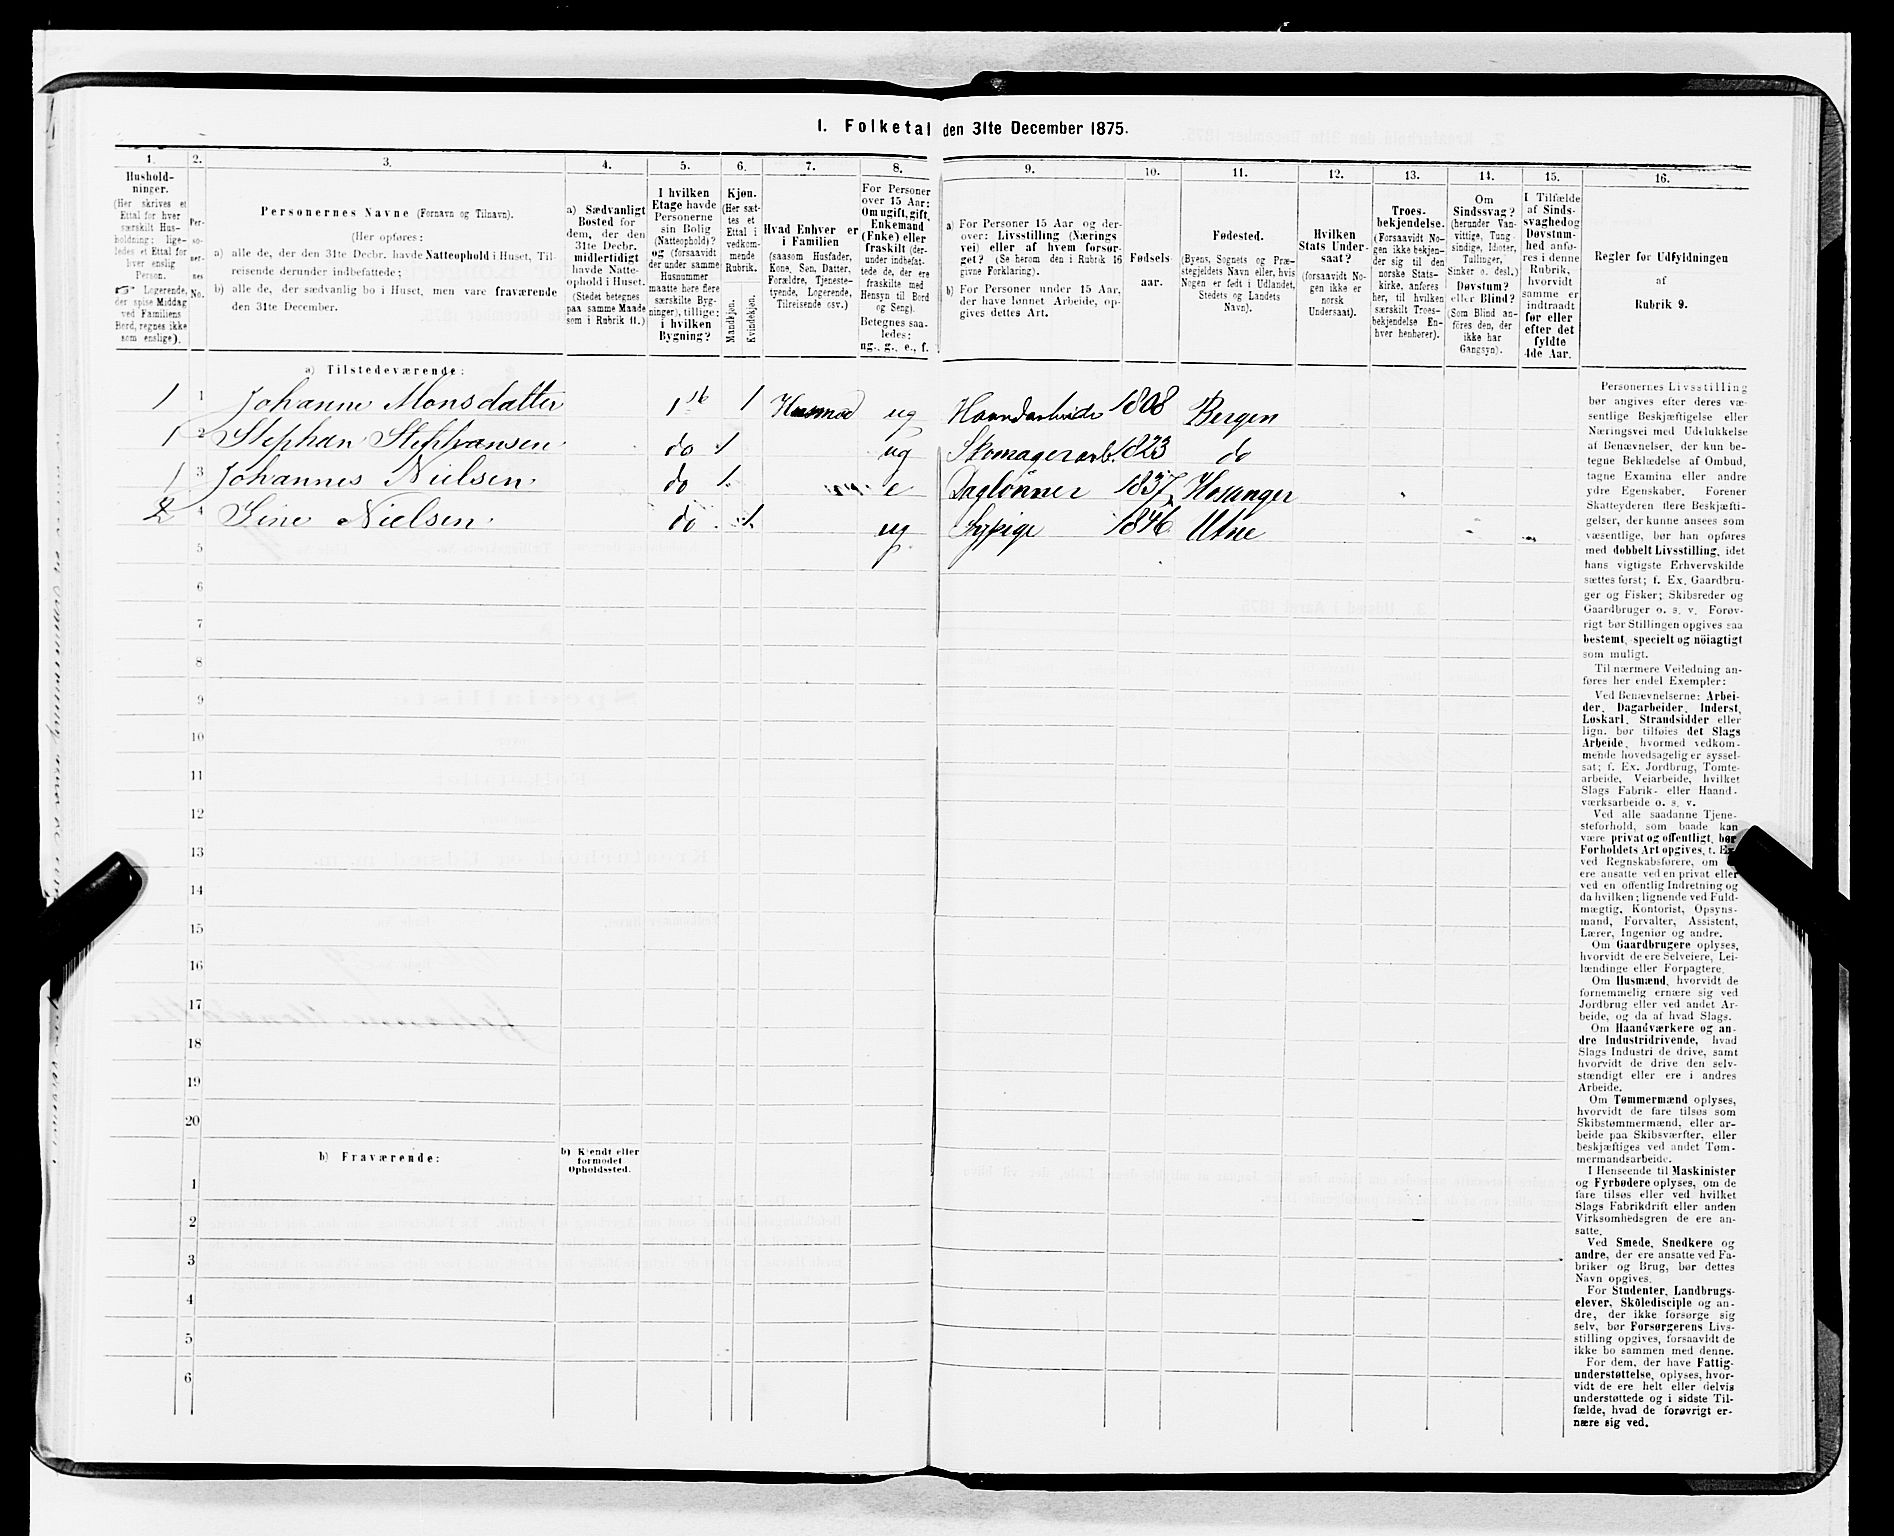 I. Folketal den 31te December 1875.
1. 2. 3. 4. 5. 6. 7. 8. 9. 10. 11. 12. 13. 14. 15. 16.
Hushold-
ninger.
(Her skrives et
Ettal for hver
særskilt Hus-
holdning; lige-
ledes et Ettal for
hver enslig
Person.
☞ Logerende,
der spise Middag
ved Familiens
Bord, regnes ikke
som enslige).
Per-
so-
ner-
nes
No.
Personernes Navne (Fornavn og Tilnavn).
(Her opføres:
a) alle de, der den 31te Decbr. havde Natteophold i Huset, Til-
reisende derunder indbefattede;
b) alle de, der sædvanlig bo i Huset, men vare fraværende
den 31te December.
a) Sædvanligt
Bosted for
dem, der den
31te Decbr.
midlertidigt
havde Natte-
ophold i Huset.
(Stedet betegnes
paa samme Maade
som i Rubrik 11.)
I hvilken
Etage havde
Personerne
sin Bolig
(Natteophold)?
og (forsaavidt
der under samme
Husnummer
maatte høre flere
særskilte Byg-
ninger), tillige:
i hvilken
Bygning?
Kjøn.
(Her sæt-
tes et
Ettal i
vedkom-
mende
Rubrik.
Mandkjøn.
Kvindekjøn.
Hvad Enhver er
i Familien
(saasom Husfader,
Kone, Søn, Datter,
Forældre, Tjeneste-
tyende, Logerende,
Tilreisende osv.)
For Personer
over 15 Aar:
Om ugift, gift,
Enkemand
(Enke) eller
fraskilt (der-
under indbefat-
tede de, der ere
fraskilte med
Hensyn til Bord
og Seng).
Betegnes saa-
ledes:
ug., g., e., f.
a) For Personer 15 Aar og der-
over: Livsstilling (Nærings
vei) eller af hvem forsør-
get? (Se herom den i Rubrik 16
givne Forklaring).
b) For Personer under 15 Aar,
der have lønnet Arbeide, op-
gives dettes Art.
Fødsels-
aar.
Fødested.
(Byens, Sognets og Præ-
stegjeldets Navn eller, hvis
Nogen er født i Udlandet,
Stedets og Landets
Navn).
Hvilken
Stats Under-
saat?
(forsaavidt No-
gen ikke er
norsk
Undersaat).
Troes-
bekjendelse.
(Forsaavidt No-
gen ikke bekjen-
der sig til den
norske Stats-
kirke, anføres
her, til hvilken
særskilt Troes-
bekjendelse En-
hver henhører).
Om
Sindssvag?
(herunder Van-
vittige, Tung-
sindige, Idioter,
Tullinger,
Sinker o. desl.)
Døvstum?
eller Blind?
(Som Blind an-
føres den, der
ikke har
Gangsyn).
I Tilfælde
af Sinds-
svaghed og
Døvstum-
hed anfø-
res i denne
Rubrik,
hvorvidt
samme er
indtraadt
før eller
efter det
fyldte
4de Aar.
Regler for Udfyldningen
af
Rubrik 9.
a) Tilstedeværende:
1 1 Johanne Monsdatter 1ste 1 Husmod ug Haandarbeide 1808 Bergen
1 2 Stephan Stephansen do 1 ug Skomagerarb. 1823 do
1 3 Johannes Nielsen do 1 e Daglønner 1837 Hosanger
2 4 Sine Nielsen do 1 ug Sypige 1846 Utne
5
6
7
8
9
10
11
12
13
14
15
16
17
18
19
20
b) Fraværende:
b) Kjendt eller
formodet
Opholdssted.
1
2
3
4
5
6
Personernes Livsstilling
bør angives efter deres væ-
sentlige Beskjæftigelse eller
Næringsvei med Udelukkelse
af Benævnelser, der kun be-
tegne Beklædelse af Ombud,
tagne Examina eller andre
ydre Egenskaber. Forener
Skatteyderen flere Beskjæfti-
gelser, der kunne ansees som
væsentlige, bør han opføres
med dobbelt Livsstilling, idet
hans vigtigste Erhvervskilde
sættes først; f. Ex. Gaardbru-
ger og Fisker; Skibsreder og
Gaardbruger o. s. v. Forøv-
rigt bør Stillingen opgives saa
bestemt, specielt og nöiagtigt
som muligt.
Til nærmere Veiledning an-
føres her endel Exempler:
Ved Benævnelserne: Arbei-
der, Dagarbeider, Inderst,
Løskarl, Strandsidder eller
lign. bør tilføies det Slags
Arbeide, hvormed vedkom-
mende hovedsagelig er syssel-
sat; f. Ex. Jordbrug, Tømte-
arbeide, Veiarbeide, hvilket
Slags Fabrik- eller Haand-
værksarbeide o. s. v.
Ved alle saadanne Tjene-
steforhold, som baade kan
være privat og offentligt, bør
Forholdets Art opgives, f. Ex.
ved Regnskabsførere, om
ere ansatte ved en privat eller
ved en offentlig Indretning og
da hvilken; lignende ved Fuld-
mægtig, Kontorist, Opsyns-
mand, Forvalter, Assistent,
Lærer, Ingeniør og andre.
Om Gaardbrugere oplyses,
hvorvidt de ere Selveiere, Lei-
lændinge eller Forpagtere.
Om Husmænd, hvorvidt de
fornemmelig ernære sig ved
Jordbrug eller ved andet Ar-
beide, og da af hvad Slags.
Om Haandværkere og an-
dre Industridrivende, hvad
Slags Industri de drive, samt
hvorvidt de drive den selv-
stændigt eller ere i andres
Arbeide.
Om Tømmermænd oplyses,
hvorvidt de fare tilsøs som
Skibstømmermænd, eller ar-
beide paa Skibsværfter, eller
beskjæftiges ved andet Tøm-
mermandsarbeide.
I Henseende til Maskinister
og Fyrbødere oplyses, om de
fare tilsøs eller ved hvilket
Slags Fabrikdrift eller anden
Virksomhedsgren de ere an-
satte.
Ved Smede, Snedkere og
andre, der ere ansatte ved Fa-
briker og Brug, bør dettes
Navn opgives.
For Studenter, Landbrugs-
elever, Skoledisciple og an-
dre, der ikke forsørge sig
selv, bør Forsørgerens Livs-
stilling opgives, forsaavidt de
ikke bo sammen med denne.
For dem, der have Fattig-
understøttelse, oplyses, hvor-
vidt de ere helt eller delvis
understøttede og i sidste Til-
fælde, hvad de forøvrigt er-
nære sig ved.